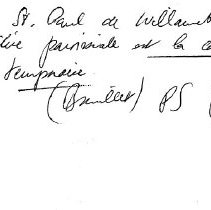 St. Paul de Willamet
paroissiale est la c
temporaire.
(Brouillet) PS (